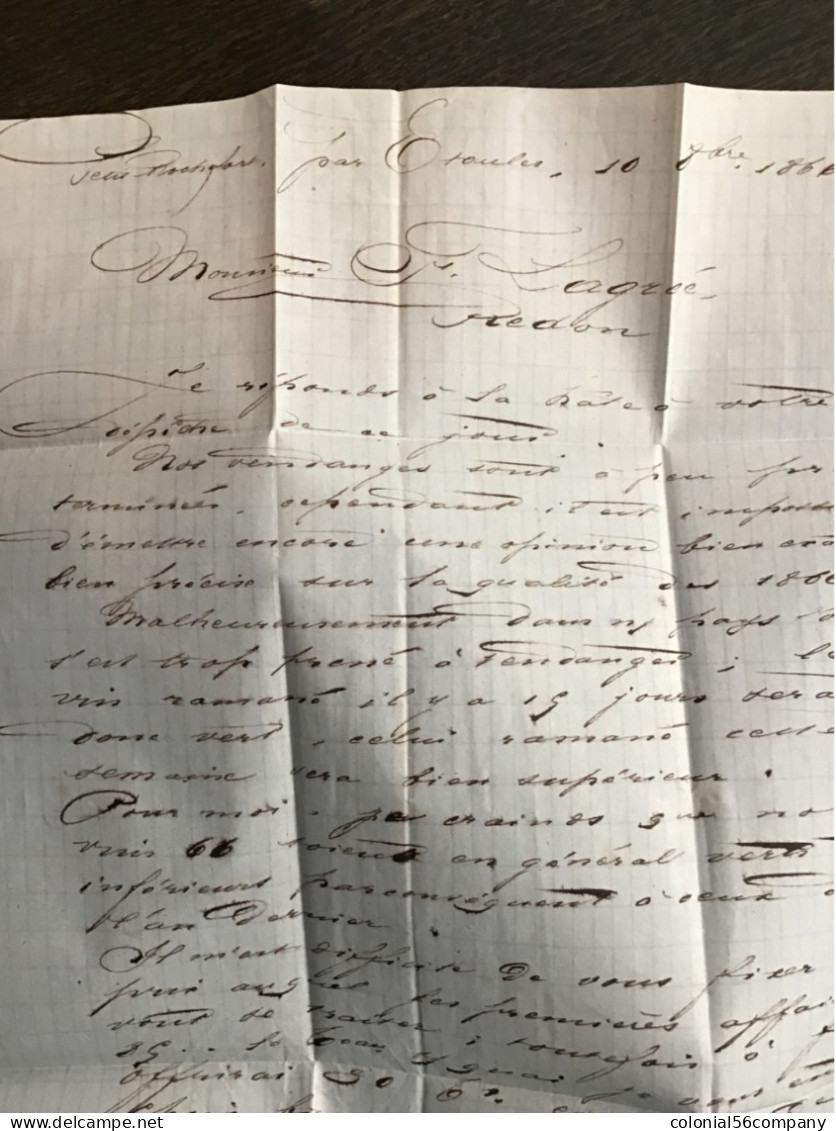 par Etaules, 10 8bre 186
Monsieur Fs. Lagrée,
Redon
Je réponds à la hâte à votre
dépêche de ce jour.
Nos vendanges sont à peu pr
terminées, cependant il est imposs
d'émettre encore une opinion bien exa
bien précise sur la qualité des 186
Malheureusement dans n/ pays l'o
s'est trop pressé à vendanger ; le
vin ramassé il y a 15 jours sera
donc vert, celui ramassé cette
semaine sera bien supérieur.
Pour moi, je crains que no
vins 66 soient en général verts
inférieurs par conséquent à ceux d
l'an dernier.
Il m'est difficile de vous fixer
prix auquel les premières affai
vont se traiter ; toutefois à
85
offrirai 90
colonial56company
delcampe.net